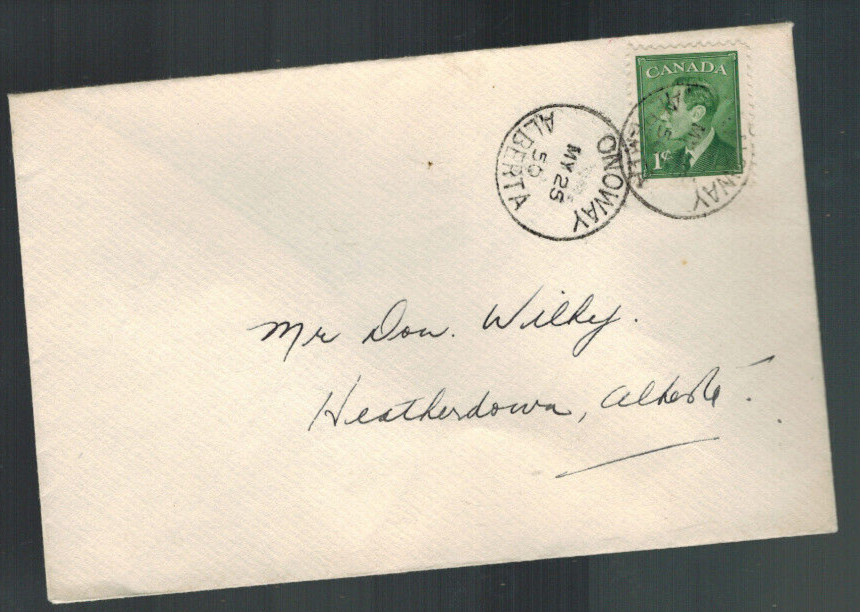 CANADA
1¢
ONOWAY
MY 25
50
ALBERTA
Mr Don. Wilky.
Heatherdown, Alberta.